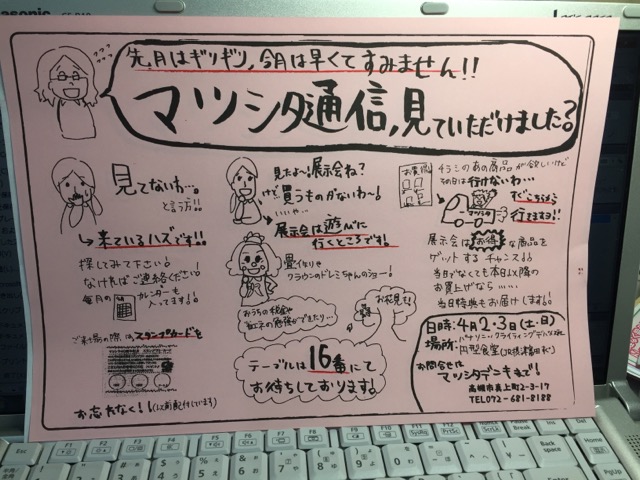 先月はギリギリ、今月は早くてすみません!!
マツシタ通信、見ていただけました?
見てないわ…。
と言う方!!
→来ているハズです!!
探してみて下さい!
なければご連絡ください!
毎月の
カレンダーも
入ってます!
ご来場の際はスタンプカードを
お忘れなく!
見たよ〜!展示会ね?
けど買うものがないわ〜!
いいや…
展示会は遊びに
行くところです!
畳作りや
クラウンのドレミちゃんのショー!
おうちの
省エネの勉強ができたり…
お花見も!
テーブルは16番にて
お待ちしております。
お買得
チラシのあの商品が欲しいけど
行けないわ…
マツシタ
行きますョ!!
展示会はお得な商品を
ゲットするチャンス!!
当日でなくても本日以降の
お買上げなら…
当日特典もお届けします!
日時:4月2・3日(土・日)
場所:
円型食堂
お問合せは
マツシタデンキまで!
高槻市真上町2-3-17
TEL072-681-8188
Panasonic
Esc
F1
F2
F3
F4
F5
F6
F7
F8
F9
F10
Back
space
Enter
Home
PgUp